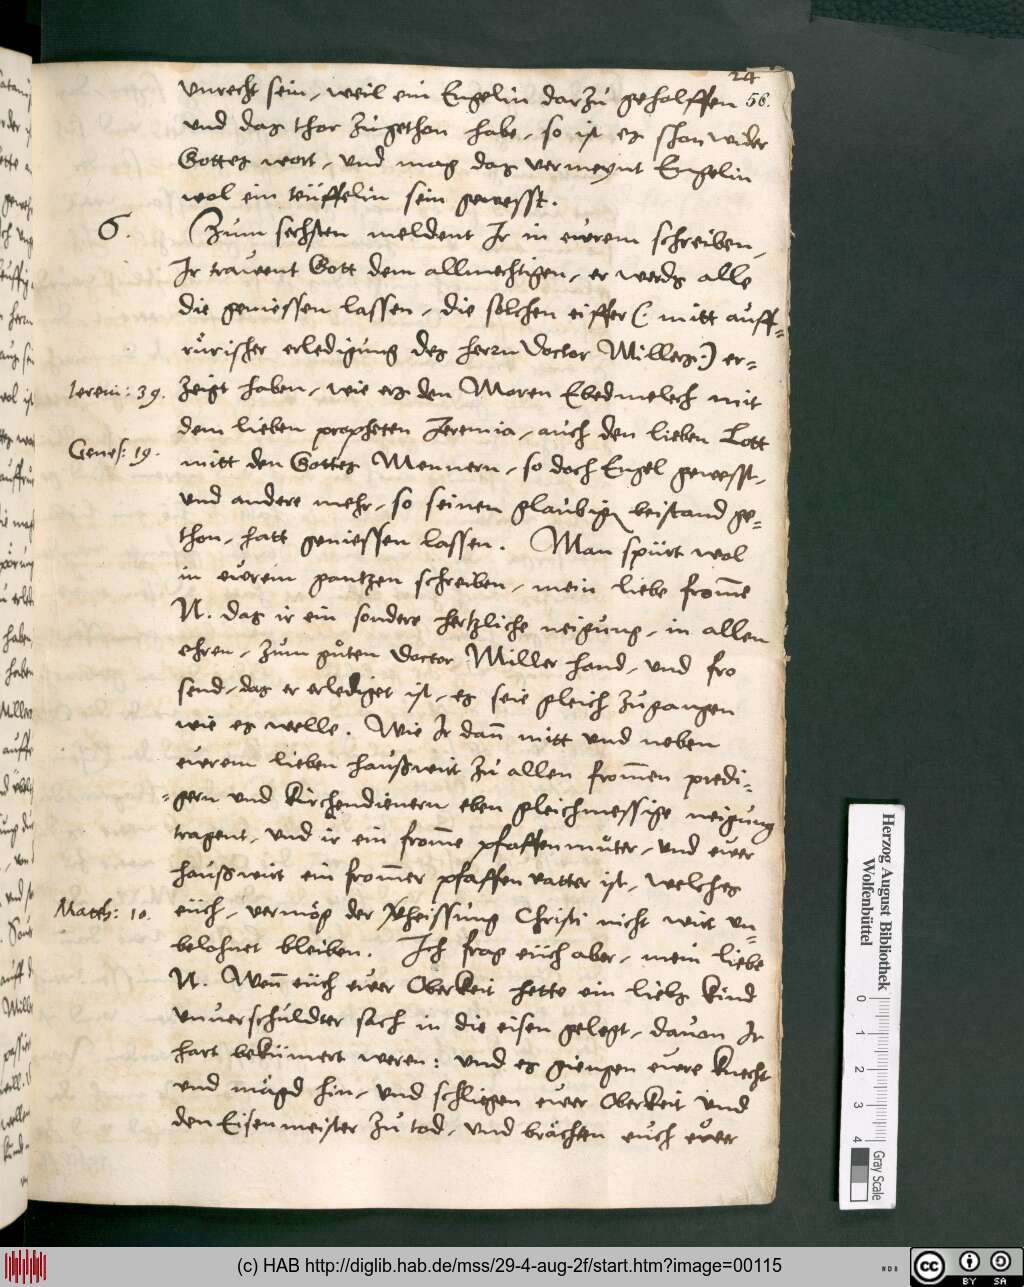 24
58.
vnrecht sein, weil ein Engelin darzů geholffen
vnd das thor zůgethon habe, so ist es schon wider
Gottes wort, vnd mag das vermeynt Engelin
wol ein teüffelin sein gewesst.
6. Zum sechsten meldent Ir in ewrem schreiben,
Ir trawent Gott dem allmechtigen, er werds alle
die geniessen lassen, die solchen eiffer (: mitt auff=
rürischer erledigung des herrn Doctor Millers:) er=
Ierem: 39. zeigt haben, wie ers den Moren Ebedmelech mit
dem lieben propheten Jeremia, auch den lieben Lott
Genes: 19. mitt den Gottes Mennern, so doch Engel gewesst,
vnd andere mehr, so seinen glaubigen beistand ge=
thon, hatt geniessen lassen. Man spürt wol
in ewrem gantzen schreiben, mein liebe from̄e
N. das ir ein sondere hertzliche neigung, in allen
ehren, zum gůten Doctor Miller hand, vnd fro
send, das er erlediget ist, es seie gleich zůgangen
wie es welle. Wie Ir dan̄ mitt vnd neben
ewerem lieben haußwirt zů allen from̄en predi=
=gern vnd kirchendienern eben gleichmessige neigung
tragent, vnd ir ein from̄e pfaffenmůter, vnd ewer
haußwirt ein from̄er pfaffenvatter ist, welches
Matth: 10. eüch, vermög der verheissung Christi nicht wirt vn=
belohnet bleiben. Ich frag eüch aber, mein liebe
N. Wen̄ eüch ewer Oberkeit hette ein liebs kind
vnuerschuldter sach in die eisen gelegt, dauon Ir
hart bekümert weren: vnd es giengen ewre knecht
vnd mägd hin, vnd schlügen ewer Oberkeit vnd
den Eisenmeister zů tod, vnd brächten euch ewer
Herzog August Bibliothek
Wolfenbüttel
0 1 2 3 4
Gray Scale
(c) HAB http://diglib.hab.de/mss/29-4-aug-2f/start.htm?image=00115
cc BY SA